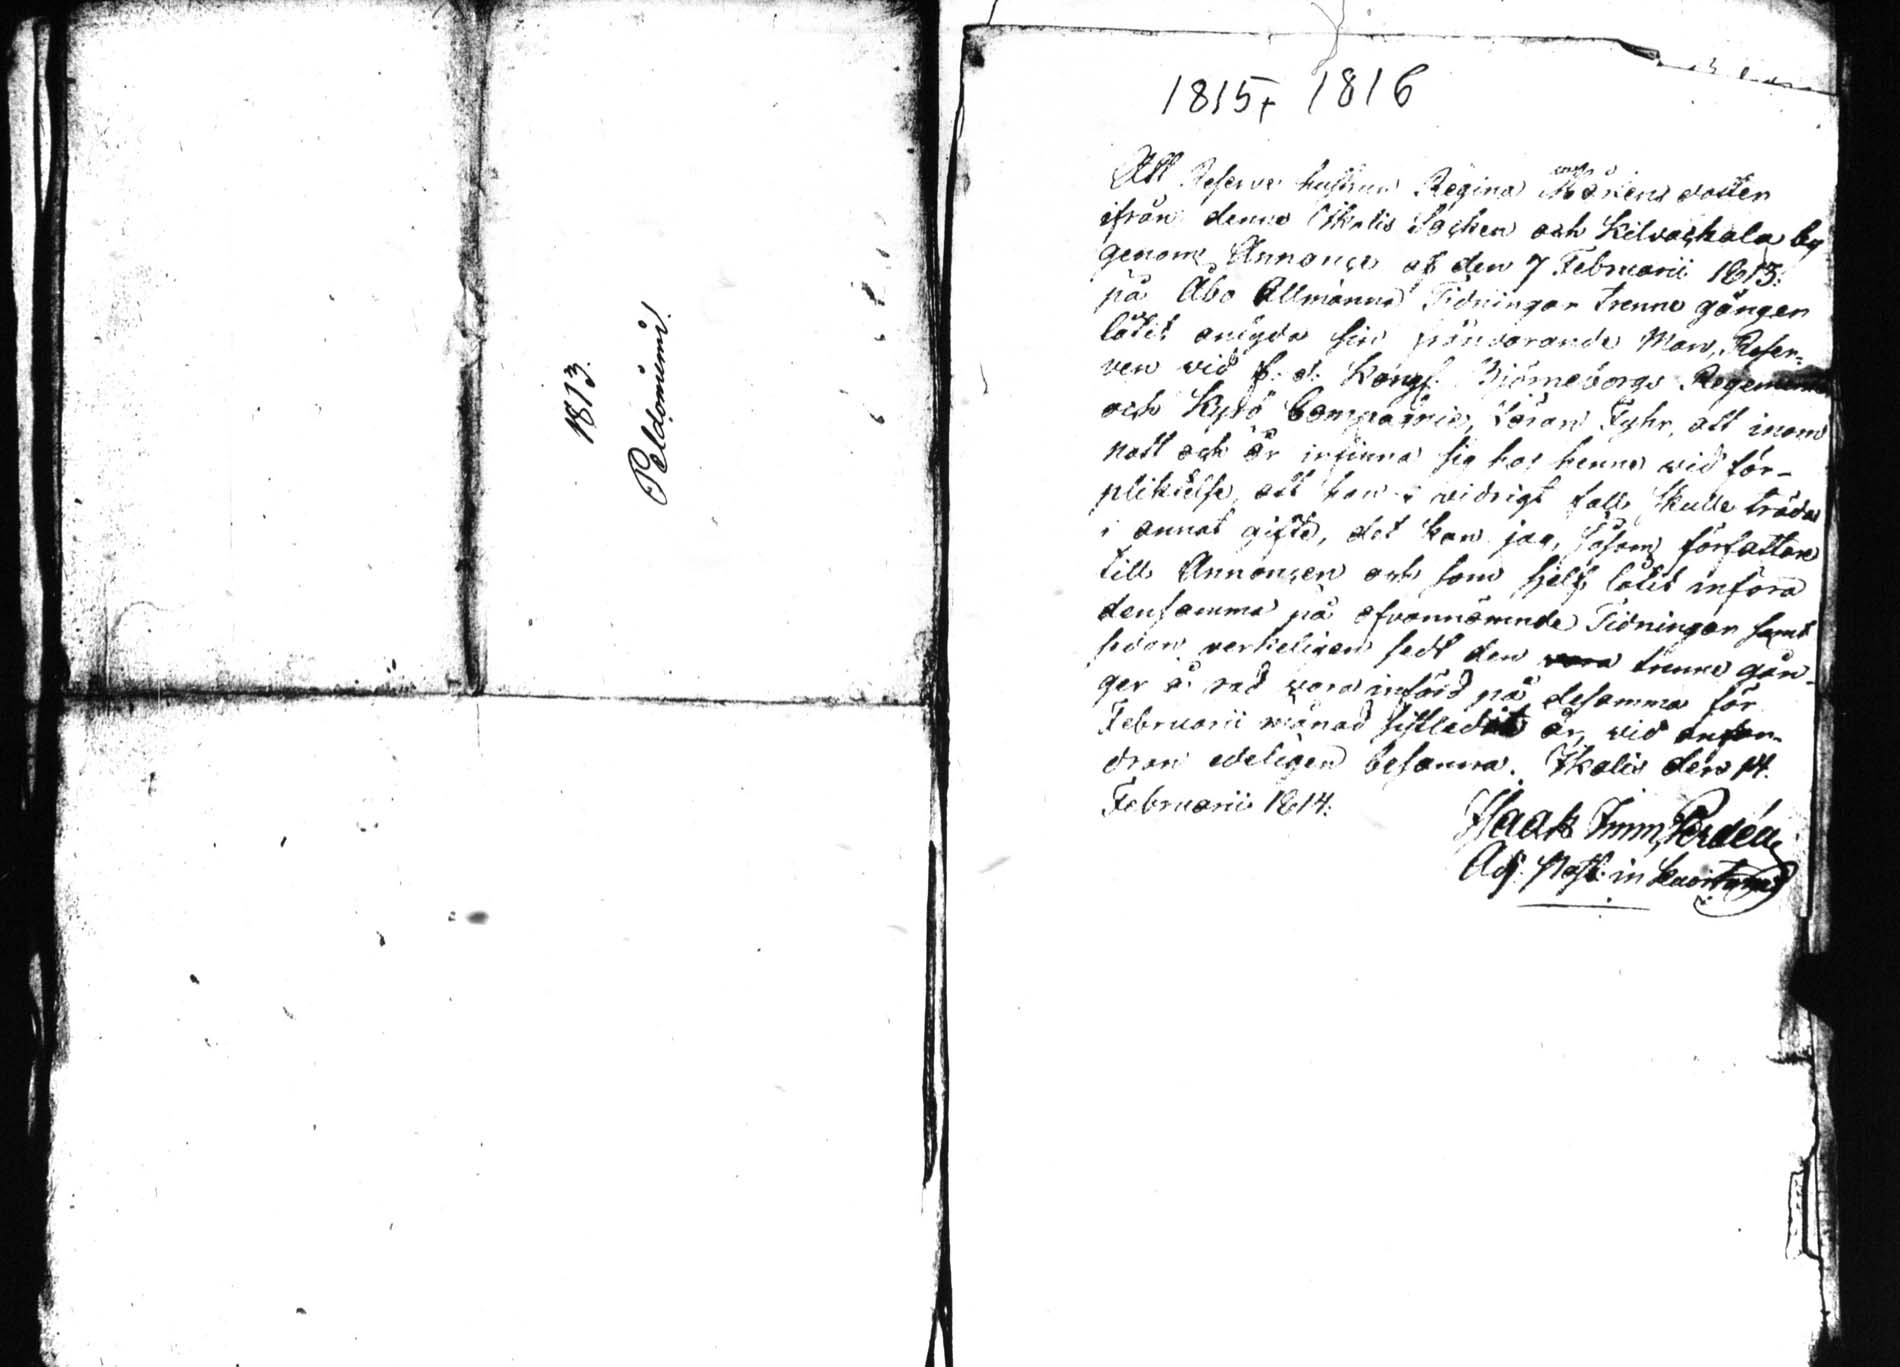 1813.
Peldoniemi.
1815 1816
Att Reserve hustrun Regina Mårtens dotter
ifrån denna Ikalis Sochen och Kilvackala by
genom Annonce af den 7 Februarii 1813.
på Åbo Allmänna Tidningar trenne gånger
låtit anlyda sin frånvarande Man, Reser-
ven vid f. d. Kongl. Björneborgs Regemente
och Kyrö Compagnie, Fyhr, att inom
natt och år infinna sig hos henne vid för-
pliktelse, att hon i vidrigt fall skulle träda
i annat gifte, det kan jag, såsom författare
till Annoncen och som sjelf låtit införa
densamma på ofvannämnde Tidningar samt
sedan verkeligen sedt den vara trenne gån-
ger å rad vara införd på desamma för
Februarii månad sistledit år, vid anfor-
dran edeligen besanna. Ikalis den 14.
Februarii 1814.
Isaak Imm. Perdén
Adj. Past. in